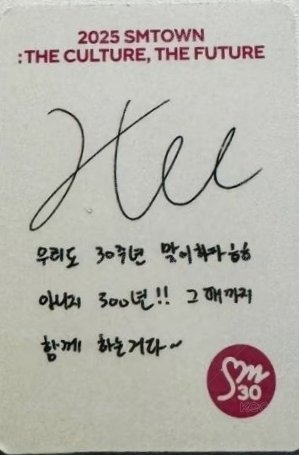 2025 SMTOWN
: THE CULTURE, THE FUTURE
우리도 30주년 맞이하자 ㅎㅎ
아니지 300년!! 그때까지
함께 하는거다~
SM
30